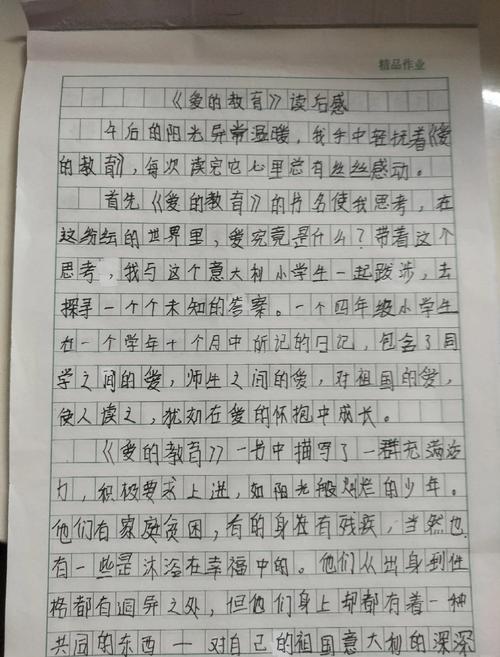 精品作业
《爱的教育》读后感
午后的阳光异常温暖，我手中轻抚着《爱
的教育》，每次读完它心里总有丝丝感动。
首先《爱的教育》的书名使我思考，在
这纷纭的世界里，爱究竟是什么？带着这个
思考，我与这个意大利小学生一起跋涉，去
探寻一个个未知的答案。一个四年级小学生
在一个学年十个月中所记的日记，包含了同
学之间的爱，师生之间的爱，对祖国的爱，
使人读之，犹如在爱的怀抱中成长。
《爱的教育》一书中描写了一群充满活
力，积极要求上进，如阳光般灿烂的少年。
他们有家庭贫困，有的身在有残疾，当然也
有一些是沐浴在幸福中的。他们从出身到性
格都有迥异之处，但他们身上却都有着一种
共同的东西一对自己的祖国意大利的深深